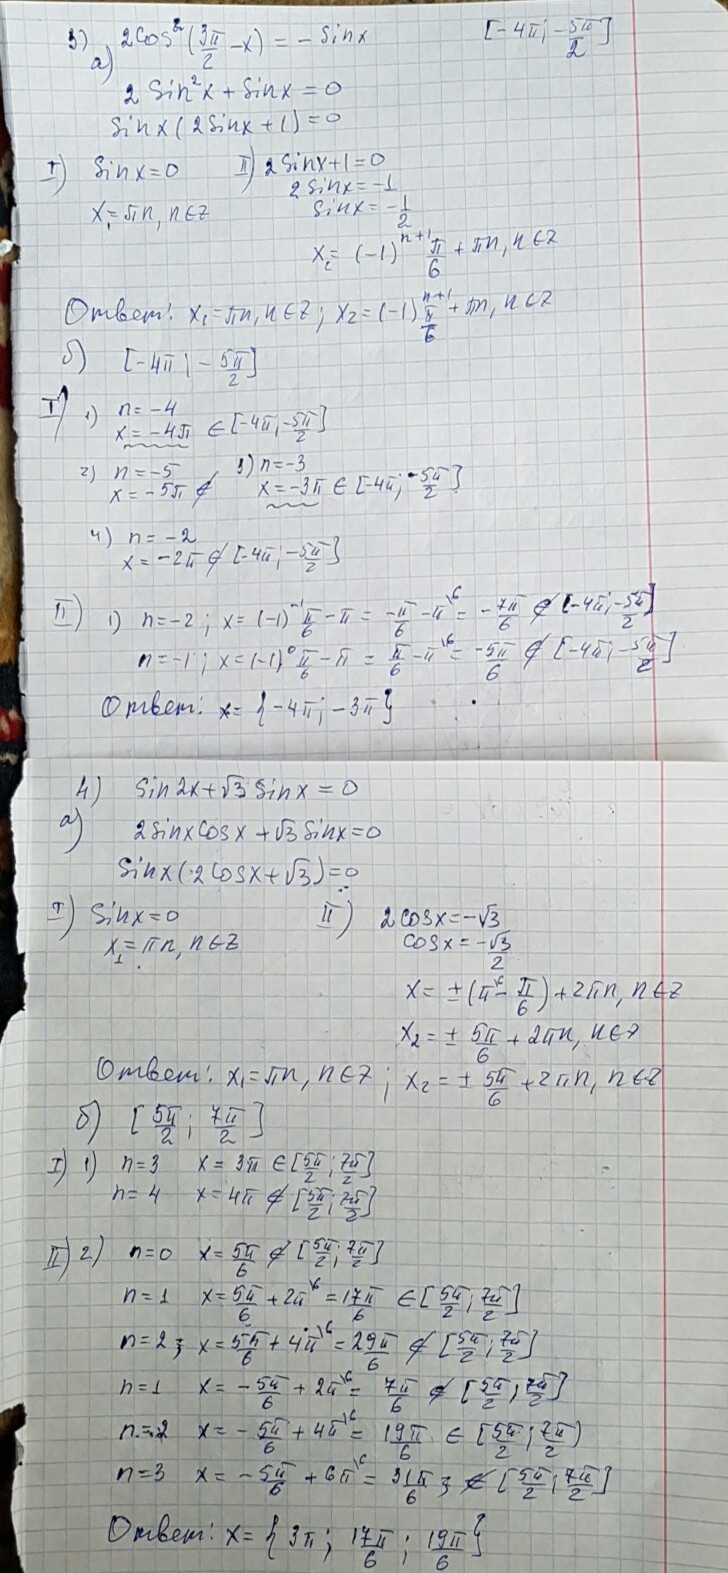 3) 2cos²(3π/2 - x) = - sin x [-4π; -5π/2]
а)
2 sin²x + sin x = 0
sin x (2 sin x + 1) = 0
I) sin x = 0 II) 2 sin x + 1 = 0
2 sin x = -1
x₁ = πn, n∈Z sin x = -1/2
x₂ = (-1)ⁿ⁺¹ π/6 + πn, n∈Z
Ответ: x₁ = πn, n∈Z; x₂ = (-1)ⁿ⁺¹ π/6 + πn, n∈Z
б) [-4π; -5π/2]
I) 1) n = -4
x = -4π ∈ [-4π; -5π/2]
2) n = -5 3) n = -3
x = -5π ∉ x = -3π ∈ [-4π; -5π/2]
4) n = -2
x = -2π ∉ [-4π; -5π/2]
II) 1) n = -2; x = (-1)⁻¹ π/6 - π = -π/6 - π\⁶ = -7π/6 ∉ [-4π; -5π/2]
n = -1; x = (-1)⁰ π/6 - π = π/6 - π\⁶ = -5π/6 ∉ [-4π; -5π/2]
Ответ: x = {-4π; -3π}
4) sin 2x + √3 sin x = 0
а)
2 sin x cos x + √3 sin x = 0
sin x (2 cos x + √3) = 0
I) sin x = 0 II) 2 cos x = -√3
x₁ = πn, n∈Z cos x = -√3/2
x = ± (π\⁶ - π/6) + 2πn, n∈Z
x₂ = ± 5π/6 + 2πn, n∈Z
Ответ: x₁ = πn, n∈Z; x₂ = ± 5π/6 + 2πn, n∈Z
б) [5π/2; 7π/2]
I) 1) n = 3 x = 3π ∈ [5π/2; 7π/2]
n = 4 x = 4π ∉ [5π/2; 7π/2]
II) 2) n = 0 x = 5π/6 ∉ [5π/2; 7π/2]
n = 1 x = 5π/6 + 2π\⁶ = 17π/6 ∈ [5π/2; 7π/2]
n = 2; x = 5π/6 + 4π\⁶ = 29π/6 ∉ [5π/2; 7π/2]
n = 1 x = -5π/6 + 2π\⁶ = 7π/6 ∉ [5π/2; 7π/2]
n = 2 x = -5π/6 + 4π\⁶ = 19π/6 ∈ [5π/2; 7π/2)
n = 3 x = -5π/6 + 6π\⁶ = 31π/6; ∉ [5π/2; 7π/2]
Ответ: x = {3π; 17π/6; 19π/6}